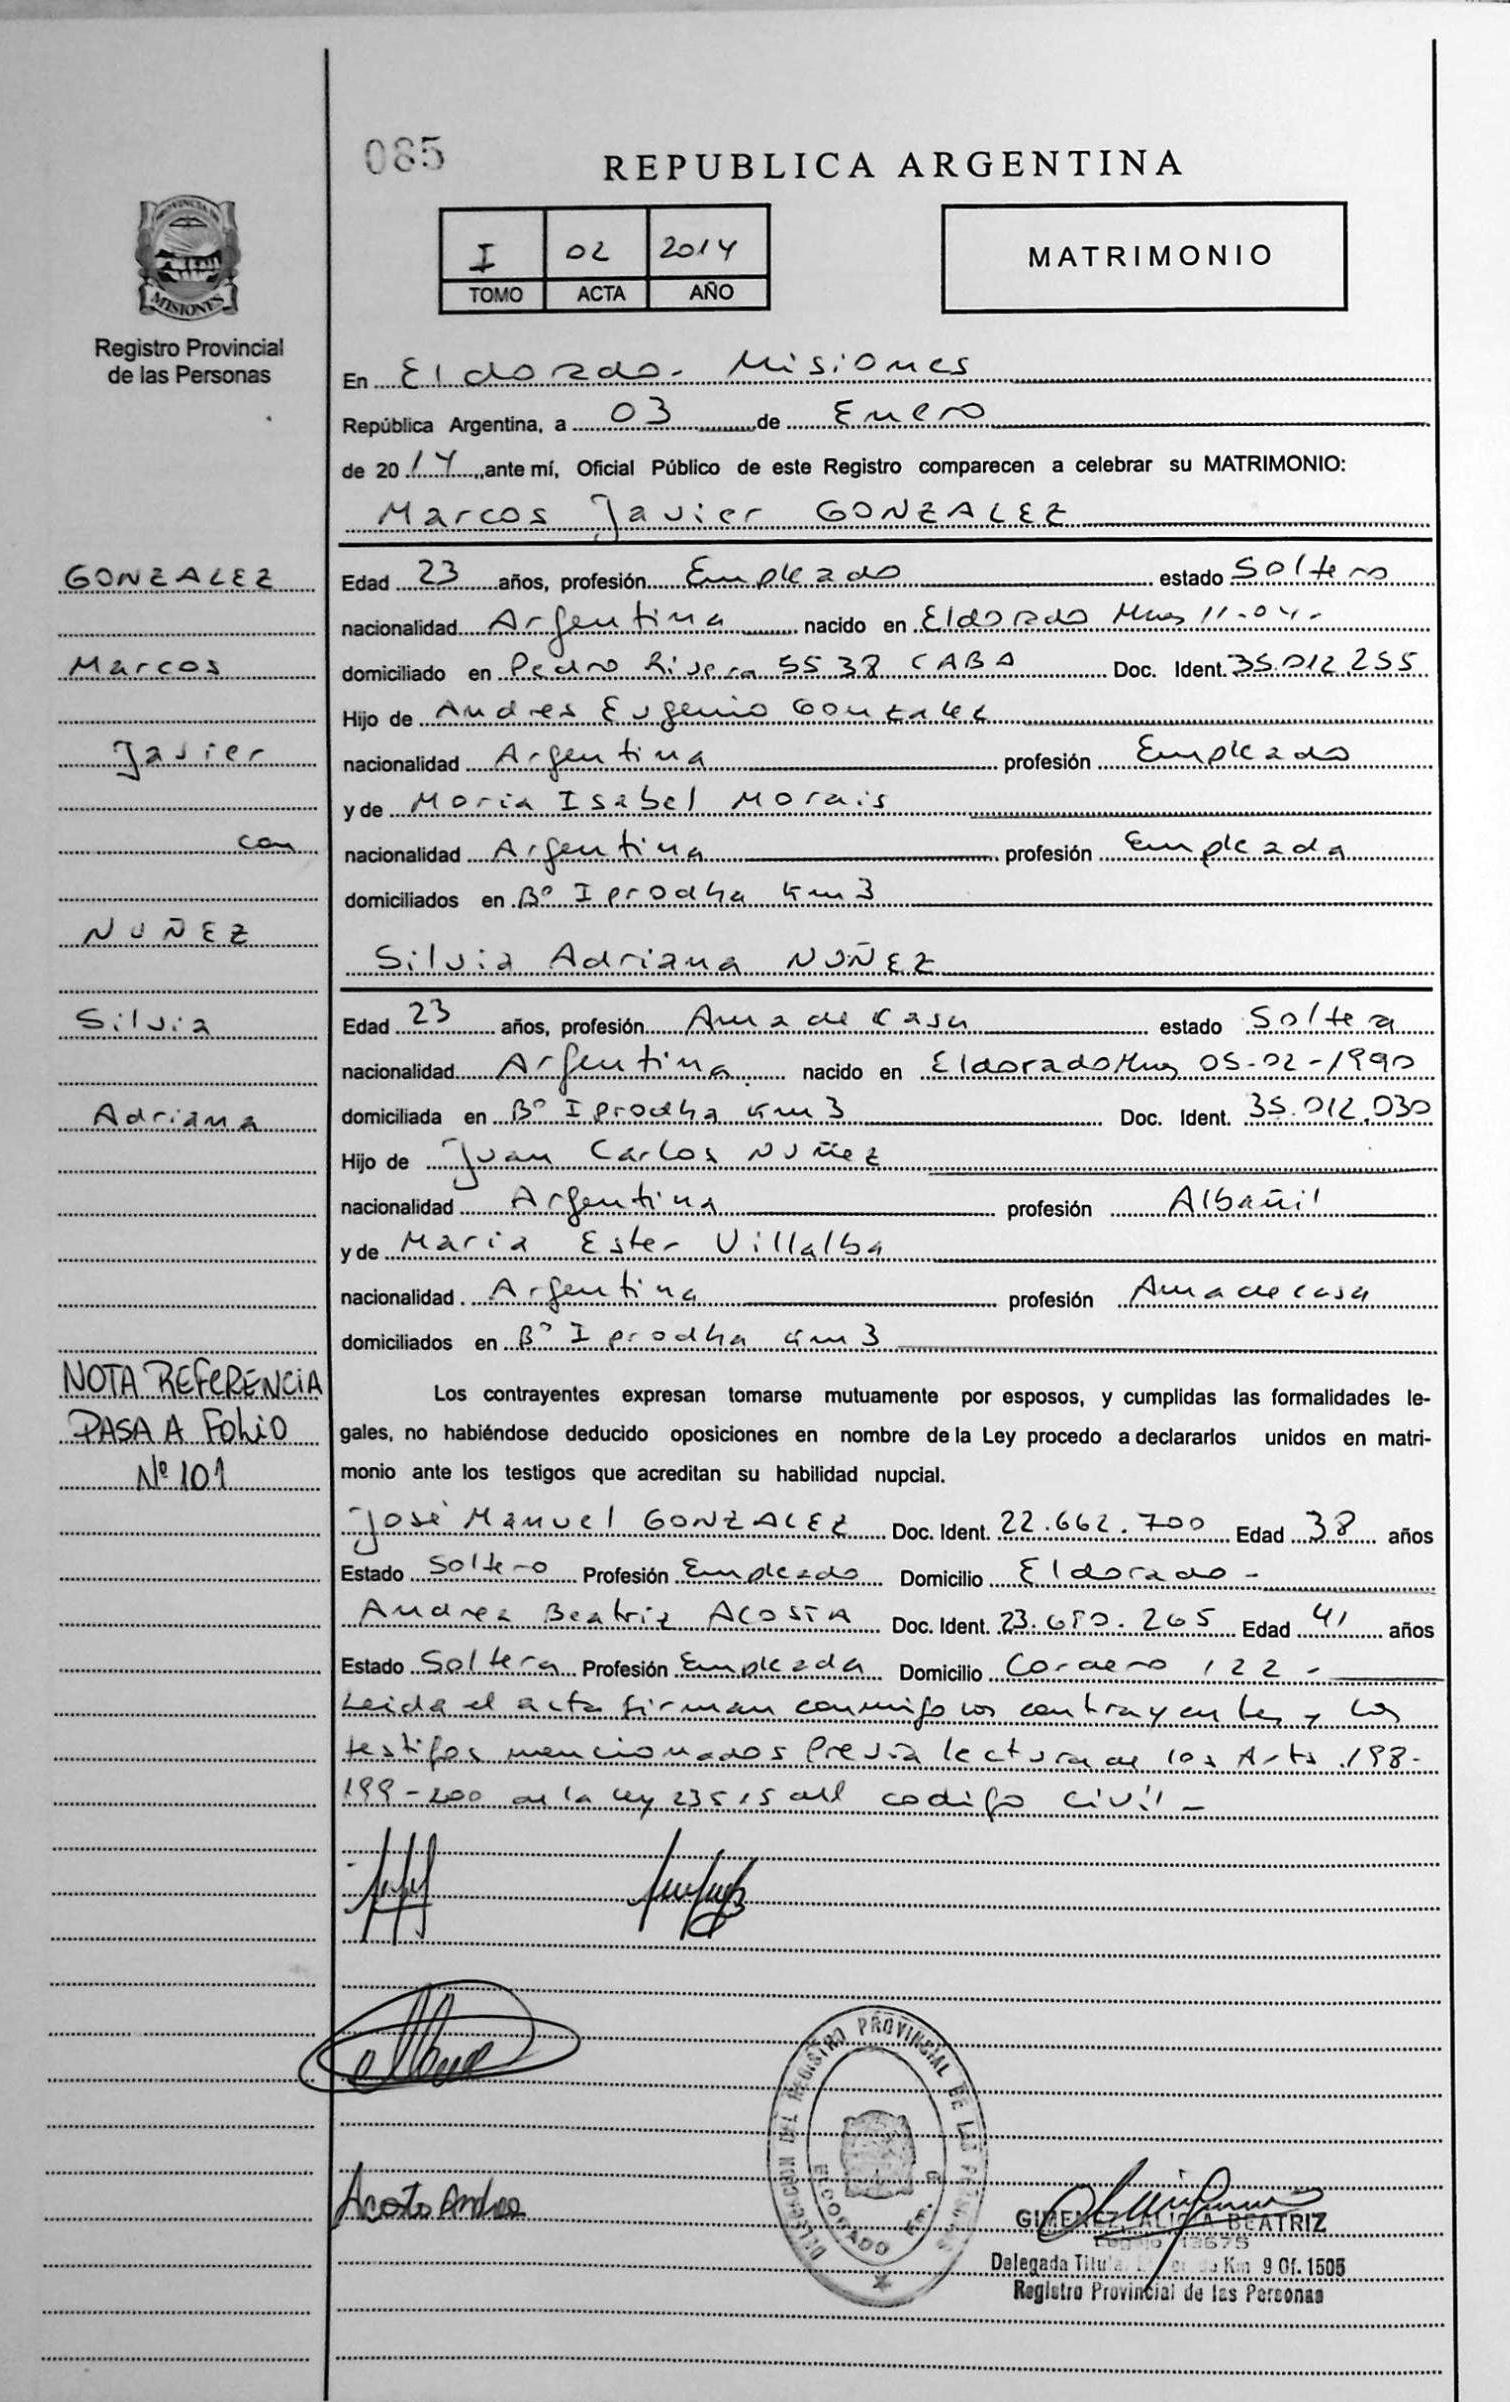 085
REPUBLICA ARGENTINA
PROVINCIA DE
MISIONES
Registro Provincial
de las Personas
I 02 2014
TOMO ACTA AÑO
MATRIMONIO
En Eldorado - Misiones
República Argentina, a 03 de Enero
de 2014 ante mí, Oficial Público de este Registro comparecen a celebrar su MATRIMONIO:
Marcos Javier GONZALEZ
GONZALEZ
Marcos
Javier
con
NUÑEZ
Silvia
Adriana
NOTA REFERENCIA
PASA A FOLIO
Nº 101
Edad 23 años, profesión Empleado estado Soltero
nacionalidad Argentina nacido en Eldorado Mnes 11-04-
domiciliado en Pedro Rivera 5538 CABA Doc. Ident. 35.012.255
Hijo de Andres Eugenio Gonzalez
nacionalidad Argentina profesión Empleado
y de Moria Isabel Morais
nacionalidad Argentina profesión Empleada
domiciliados en Bº Iprodha km 3
Silvia Adriana NUÑEZ
Edad 23 años, profesión Ama de Casa estado Soltera
nacionalidad Argentina nacido en Eldorado Mnes 05-02-1990
domiciliada en Bº Iprodha km 3 Doc. Ident. 35.012.030
Hijo de Juan Carlos Nuñez
nacionalidad Argentina profesión Albañil
y de Maria Ester Villalba
nacionalidad Argentina profesión Ama de casa
domiciliados en Bº Iprodha km 3
Los contrayentes expresan tomarse mutuamente por esposos, y cumplidas las formalidades le-
gales, no habiéndose deducido oposiciones en nombre de la Ley procedo a declararlos unidos en matri-
monio ante los testigos que acreditan su habilidad nupcial.
José Manuel GONZALEZ Doc. Ident. 22.662.700 Edad 38 años
Estado Soltero Profesión Empleado Domicilio Eldorado -
Andrea Beatriz ACOSTA Doc. Ident. 23.680.265 Edad 41 años
Estado Soltera Profesión Empleada Domicilio Cordero 122 -
Leida el acta firman conmigo los contrayentes y los
testigos mencionados Previa lectura de los Arts. 198-
199-200 de la ley 23515 del codigo civil -
Acosta Andrea
DELEGACION DEL REGISTRO PROVINCIAL DE LAS PERSONAS
ELDORADO
GIMENEZ, ALICIA BEATRIZ
13675
Delegada Titular Km 9 Of. 1505
Registro Provincial de las Personas